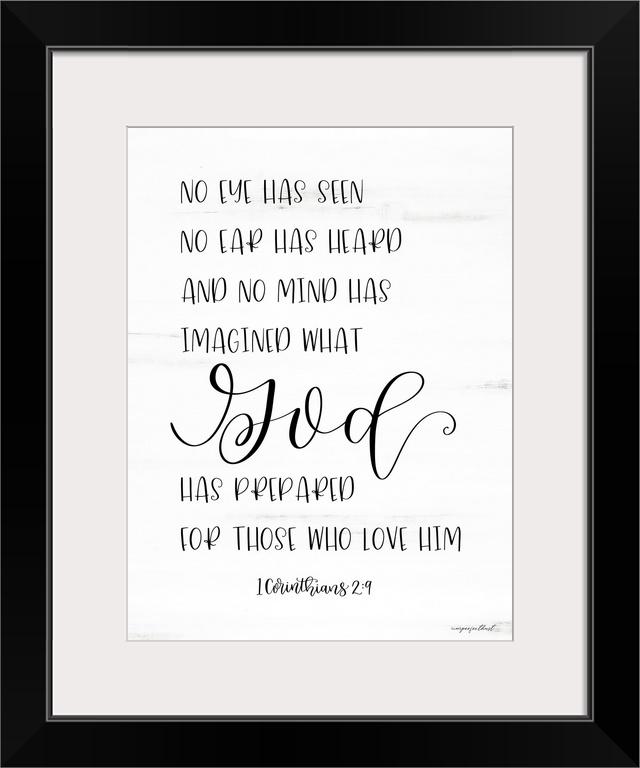 NO EYE HAS SEEN
NO EAR HAS HEARD
AND NO MIND HAS
IMAGINED WHAT
God
HAS PREPARED
FOR THOSE WHO LOVE HIM
1 Corinthians 2:9
imperfectdust